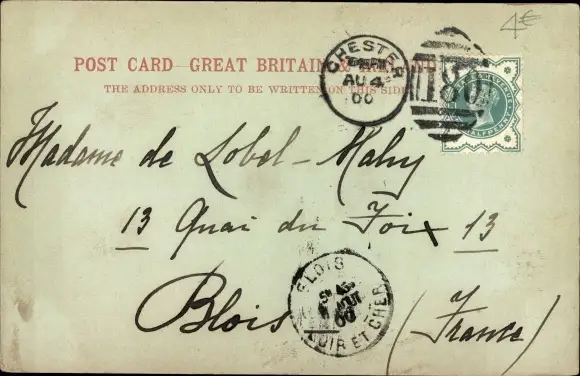 4€
POST CARD—GREAT BRITAIN & IRELAND
THE ADDRESS ONLY TO BE WRITTEN ON THIS SIDE
CHESTER
AU 4
00
180
HALFPENNY
Madame de Lobel-Mahy
13 Quai du Foix 13
BLOIS
AOUT
00
LOIR ET CHER
Blois (France)